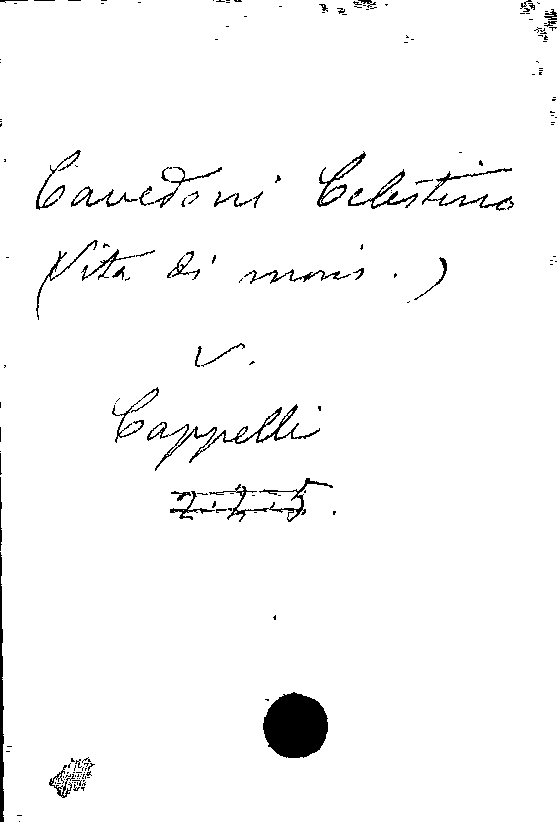 Cavedoni Celestino
(Vita di mons.)
V.
Cappelli
2.2.5.